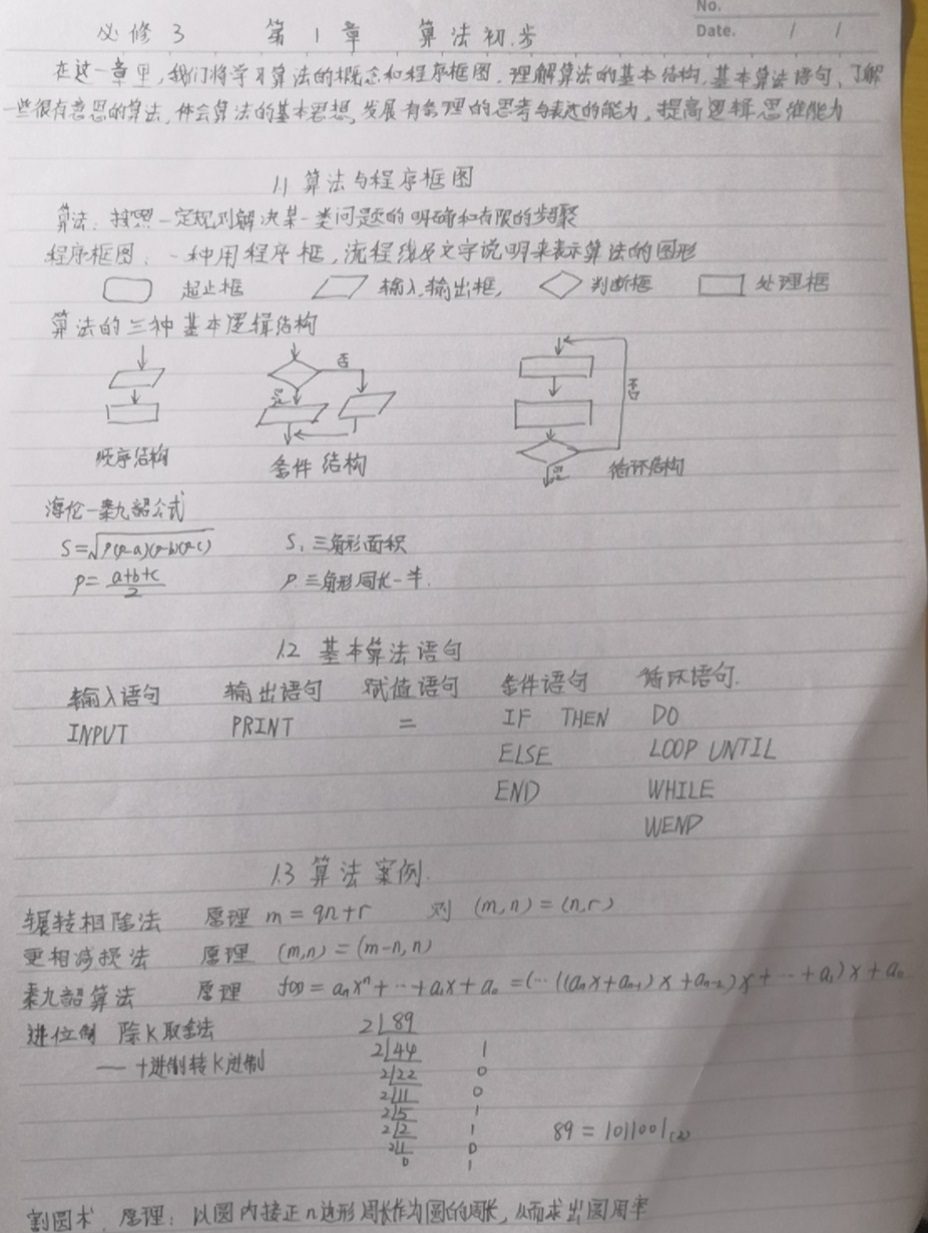 No.
Date. / /
必修3 第1章 算法初步
在这一章里,我们将学习算法的概念和程序框图,理解算法的基本结构、基本算法语句,了解
一些很有意思的算法,体会算法的基本思想,发展有条理的思考与表达的能力,提高逻辑思维能力
1.1 算法与程序框图
算法:按照一定规则解决某一类问题的明确和有限的步骤
程序框图:一种用程序框,流程线及文字说明来表示算法的图形
起止框 输入.输出框, 判断框 处理框
算法的三种基本逻辑结构
否
是
否
是
顺序结构 条件结构 循环结构
海伦-秦九韶公式
S=√p(p-a)(p-b)(p-c) S:三角形面积
p=(a+b+c)/2 P:三角形周长一半.
1.2 基本算法语句
输入语句 输出语句 赋值语句 条件语句 循环语句.
INPUT PRINT = IF THEN DO
ELSE LOOP UNTIL
END WHILE
WEND
1.3 算法案例.
辗转相除法 原理 m=qn+r 则 (m,n)=(n,r)
更相减损法 原理 (m,n)=(m-n,n)
秦九韶算法 原理 f(x)=aₙxⁿ+…+a₁x+a₀=(…((aₙx+aₙ₋₁)x+aₙ₋₂)x+…+a₁)x+a₀
进位制 除K取余法 2|89
——十进制转K进制 2|44 1
2|22 0
2|11 0
2|5 1
2|2 1 89=1011001(2)
2|1 0
0 1
割圆术. 原理:以圆内接正n边形周长作为圆的周长,从而求出圆周率